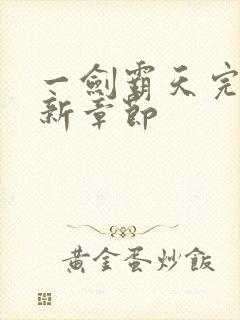 一劍霸天完
新章節
黃金蛋炒飯